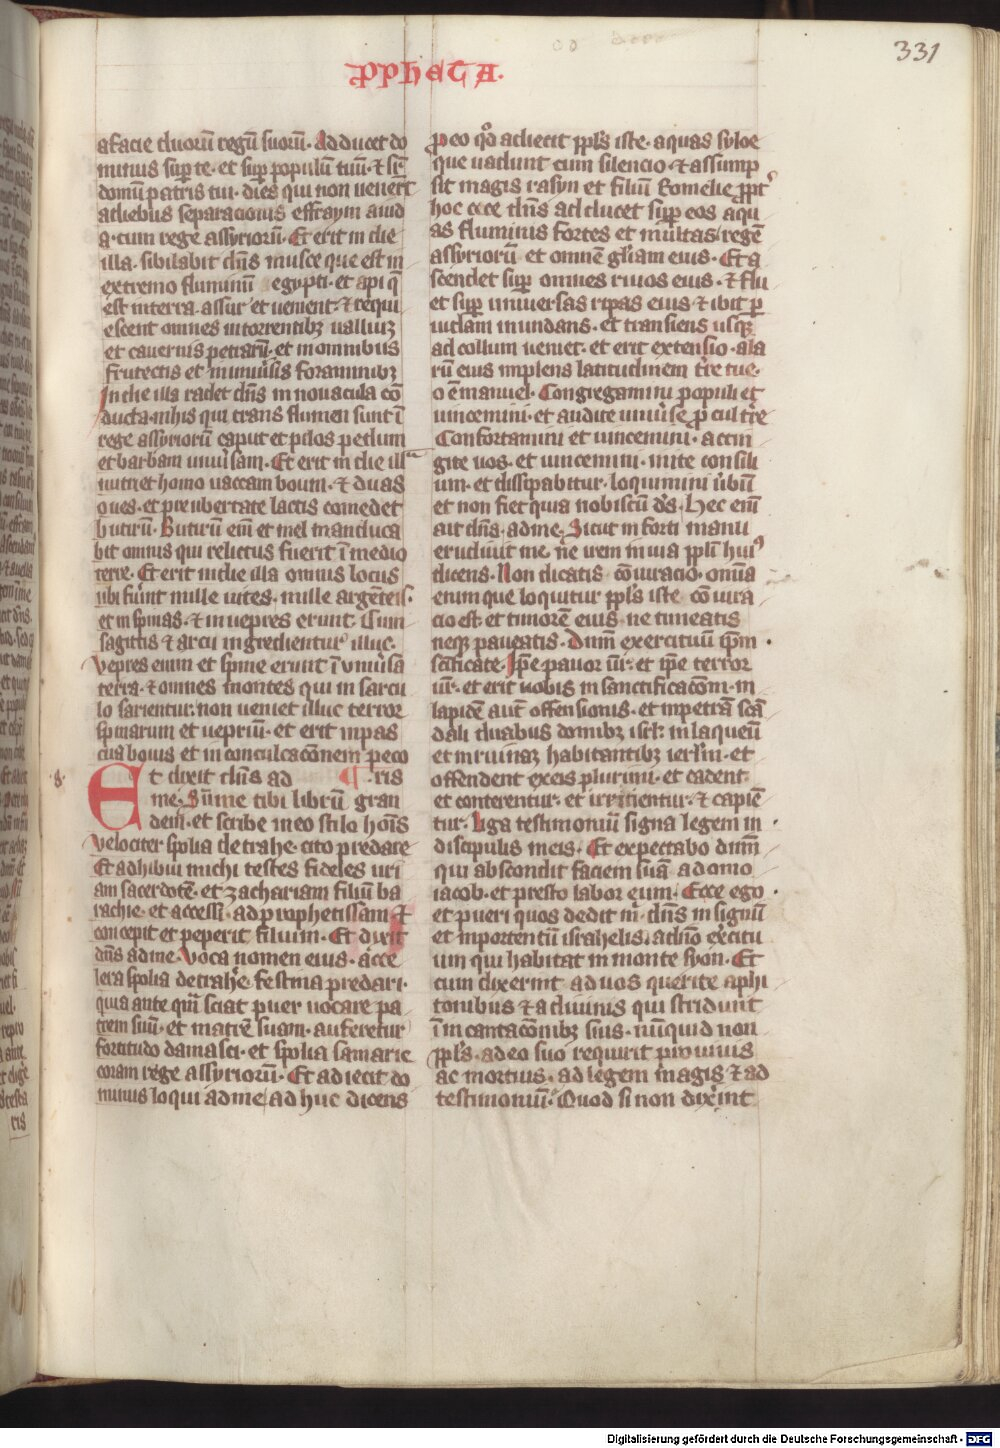 331
ꝓphetA.
afacie duorū regū suorū. Adducet do
minus suꝑ te. et suꝑ populū tuū. ⁊ sr̄
domū patris tui. dies qui non uenert̄
adiebus separacionis effraym aiud
a. cum rege assyriorū. Et erit in die
illa. sibilabit dn̄s musce que est in
extremo fluminū egypti. et api q̄
est interra assur et uenient. ⁊ requi
escent omnes intorrentibꝫ ualliuꝫ
et cauernis petrarū. et inomnibus
frutectis et in uniu̓sis foraminibꝫ
In die illa radet dn̄s in nouacula cō
ducta. in his qui trans flumen sunt ī
rege assyriorū caput et pilos pedum
et barbam uniu̓sam. Et erit in die illa
nutriet homo uaccam boum. ⁊ duas
oues. et pre ubertate lactis comedet
butirū. Butirū em̄ et mel manduca
bit omnis qui relictus fuerit ī medio
terre. Et erit indie illa omnis locus
ubi fu̓int mille uites. mille argēteis.
et in spinas. ⁊ in uepres erunt. Cum
sagittis ⁊ arcu ingredientur illuc.
Vepres enim et spine erunt ī uniu̓sa
terra. ⁊ omnes montes qui in sarcu
lo sarientur. non ueniet illuc terror
spinarum et uepriū. et erit inpas
cua bouis et in conculcacōnem peco
.8.
Et dixit dn̄s ad ¶.ris
me. Sūme tibi librū gran
dem. et scribe ineo stilo hoīs
velociter spolia detrahe. cito predare
Et adhibui michi testes fideles uri
am sacerdotē. et zachariam filiū ba
rachie. et accessi. ad prophetissam. ⁊
concepit et peperit filium. Et dixit
dn̄s adme. Voca nomen eius. acce
lera spolia detrahe. festina predari.
quia ante qm̄ sciat puer uocare pa
trem suū. et matrē suam. auferetur
fortitudo damasci. et spolia samarie
coram rege assyriorū. Et adiecit do
minus loqui adme ad huc dicens
Pro eo qͦ adiecit ppl̓s iste. aquas syloe
que uadunt cum silencio. ⁊ assump
sit magis rasyn et filiū Romelie ꝓpt̓
hoc ecce dn̄s ad ducet suꝑ eos aqu
as fluminis fortes et multas. regē
assyriorū et omnē gl̄iam eius. Et a
scendet suꝑ omnes riuos eius. ⁊ flu
et suꝑ uniuersas ripas eius ⁊ ibit ꝑ
iudam inundans. et transiens usqꝫ
ad collum ueniet. et erit extensio. ala
rū eius implens latitudinem t̓re tue.
o ēmanuel. Congregamini populi et
uincemini. et audite uniu̓se ꝓcul t̓re
Confortamini et uincemini. accin
gite uos. et uincemini. inite consili
um. et dissipabitur. loquimini u̓bū
et non fiet quia nobiscū ds̄. Hec em̄
ait dn̄s. adme. Sicut in forti manu
erudiuit me. ne irem in uia ppl̓i huiꝰ
dicens. Non dicatis cōiuracio. omīa
enim que loquitur ppl̓s iste cōiura
cio est. et timorē eius ne timeatis
neqꝫ paueatis. Dnm̄ exercituū ip̄m
scīficate. Ip̄e pauor ur̄. et ip̄e terror
ur̄. et erit uobis in sanctificacōm. in
lapidē aut̄ offensionis. et inpetrā scā
dali duabus domibꝫ isrl̓. in laqueū
et inruinaꝫ habitantibꝫ ierl̄m. et
offendent exeis plurimi. et cadent.
et conterentur. et irretientur. ⁊ capiē
tur. Liga testimoniū signa legem in
discipulis meis. Et expectabo dnm̄
qui abscondit faciem suā adomo
iacob. et presto labor eum. Ecce ego
et pueri quos dedit m̓ dn̄s in signū
et inportentū israhelis. adn̄o exercitu
um qui habitat in monte syon. Et
cum dixerint ad uos querite aphi
tonibus ⁊ a diuinis qui stridunt
ī incantacōnibꝫ suis. nūquid non
ppl̓s. adeo suo requirit pro uiuis
ac mortuis. ad legem magis ⁊ ad
testimoniū. Quod si non dixerint
Digitalisierung gefördert durch die Deutsche Forschungsgemeinschaft - DFG